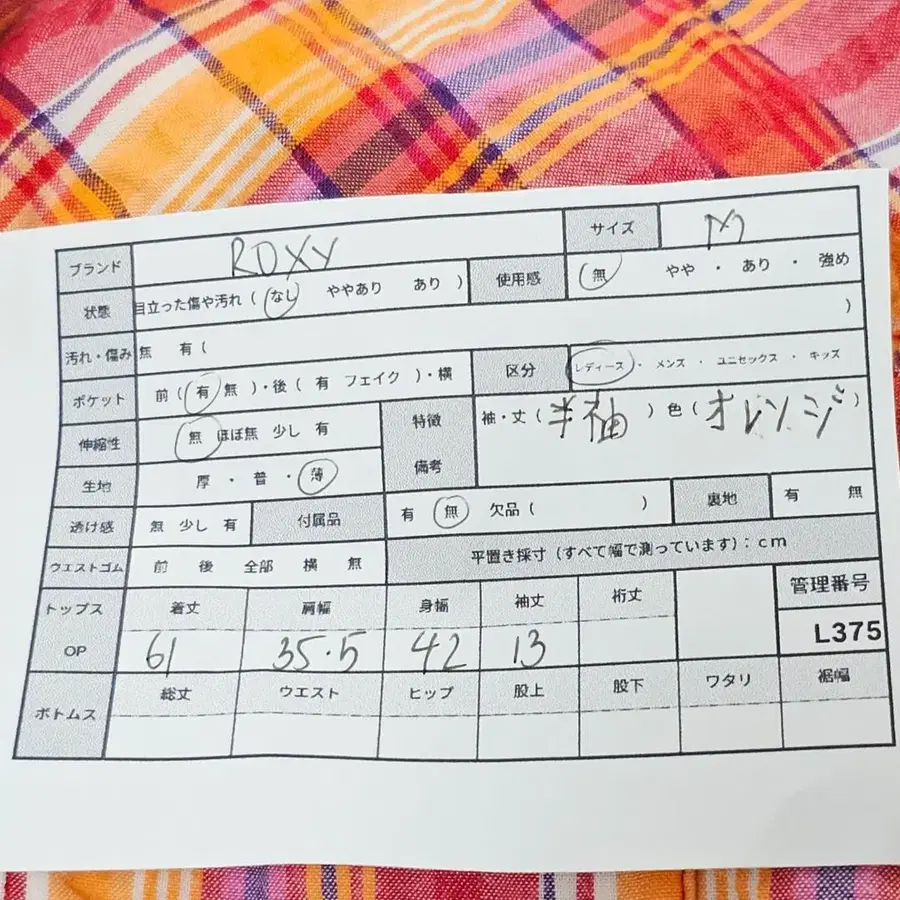 ブランド ROXY サイズ M
状態 目立った傷や汚れ ( なし ややあり あり ) 使用感 ( 無 やや ・ あり ・ 強め
汚れ・傷み 無 有 ( )
ポケット 前 ( 有 無 )・後 ( 有 フェイク )・横 区分 レディース ・ メンズ ・ ユニセックス ・ キッズ
伸縮性 無 ほぼ無 少し 有 特徴 備考 袖・丈 ( 半袖 ) 色 ( オレンジ )
生地 厚 ・ 普 ・ 薄
透け感 無 少し 有 付属品 有 無 欠品 ( ) 裏地 有 無
ウエストゴム 前 後 全部 横 無 平置き採寸 (すべて幅で測っています) : cm
トップス 着丈 肩幅 身幅 袖丈 裄丈 管理番号
OP 61 35.5 42 13 L375
ボトムス 総丈 ウエスト ヒップ 股上 股下 ワタリ 裾幅